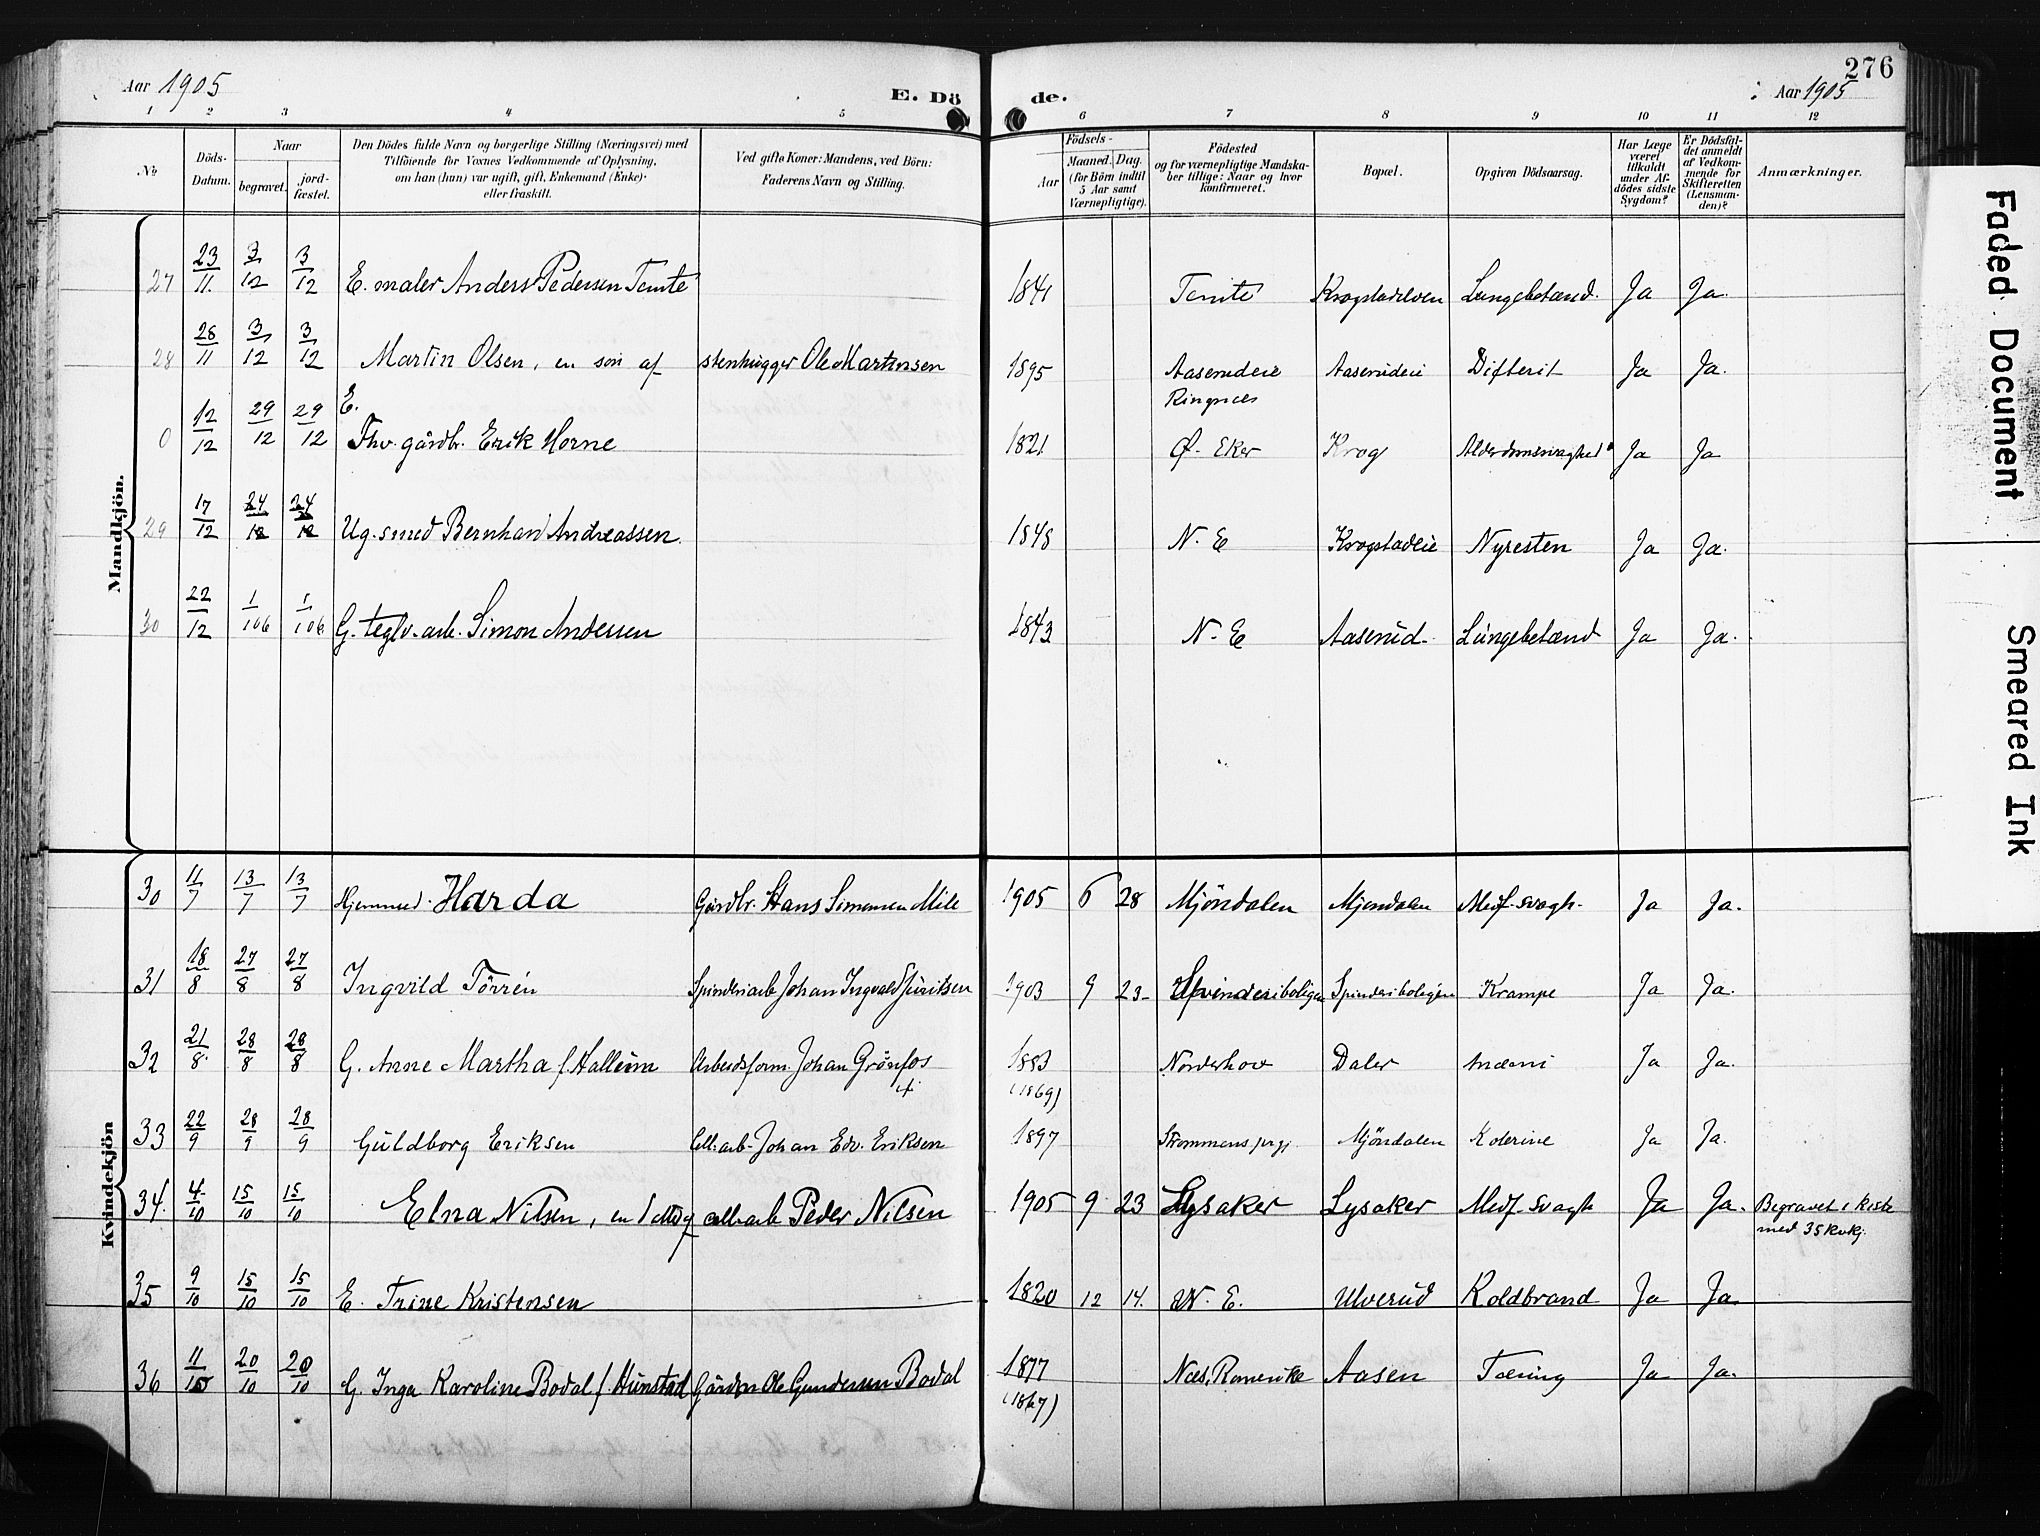 276
Aar 1905
E. Dö
de.
Aar 1905
1 2 3 4 5 6 7 8 9 10 11 12
No
Döds-Datum.
Naar
begravet.
jord-fæstet.
Den Dödes fulde Navn og borgerlige Stilling (Næringsvei) med
Tilföiende for Voxnes Vedkommende af Oplysning,
om han (hun) var ugift, gift, Enkemand (Enke)
eller fraskilt.
Ved gifte Koner: Mandens, ved Börn:
Faderens Navn og Stilling.
Födsels-
Aar
Maaned. Dag.
(for Börn indtil
5 Aar samt
Værnepligtige).
Födested
og for værnepligtige Mandska-
ber tillige: Naar og hvor
konfirmeret.
Bopæl.
Opgiven Dödsaarsag.
Har Læge
været
tilkaldt
under Af-
dödes sidste
Sygdom?
Er Dödsfal-
det anmeldt
af Vedkom-
mende for
Skifteretten
(Lensman-
den)?
Anmærkninger.
Mandkjön.
27 23/11 3/12 3/12 E. maler Anders Pedersen Temte 1841 Temte Krogstadelven Lungebetænd. Ja Ja.
28 28/11 3/12 3/12 Martin Olsen, en søn af stenhugger Ole Martinsen 1895 Aaserudeie Aaserudeie Difterit Ja Ja.
Ringnæs
E.
0 12/12 29/12 29/12 Fhv. gårdbr. Erik Horne 1821 Ø. Eker Krog Alderdomssvaghed Ja Ja
29 17/12 24/12 24/12 Ug. smed Bernhard Andreassen. 1848 N. E Krogstadeie Nyresten Ja Ja.
30 22/12 1/1 06 1/1 06 G. teglv. arb. Simon Andersen 1843 N. E Aaserud. Lungebetænd Ja Ja.
Kvindekjön
30 11/7 13/7 13/7 Hjemmed. Harda Gårdbr. Hans Simensen Mile 1905 6 28 Mjöndalen Mjöndalen Medf. svagh. Ja Ja.
31 18/8 27/8 27/8 Ingvild Törrén Spinderiarb Johan Ingvald 1903 9 23 Spinderiboligen Spinderiboligen Krampe Ja Ja.
32 21/8 28/8 28/8 G. Anne Martha f. Halleim Arbeidsform. Johan Grönfos 1883 Norderhov Daler Anæmi Ja Ja.
(1869)
33 22/9 28/9 28/9 Guldborg Eriksen Cell: arb. Johan Edv. Eriksen 1897 Strommens prgj Mjöndalen Kolerine Ja Ja.
34. 4/10 15/10 15/10 Elna Nilsen, en d af cellarb Peder Nilsen 1905 9 23 Lysaker Lysaker Medf. svagh Ja Ja. Begravet i kiste
med 35 kvkj.
35 9/10 15/10 15/10 E. Trine Kristensen 1820 12 14. N. E. Ulverud Koldbrand Ja Ja.
36 11/10 20/10 20/10 G. Inga Karoline Bodal f. Hunstad Gårdbr Ole Gundersen Bodal 1877 Næs, Romerike Aasen Tæring Ja Ja.
(1867)
Faded Document
Smeared Ink